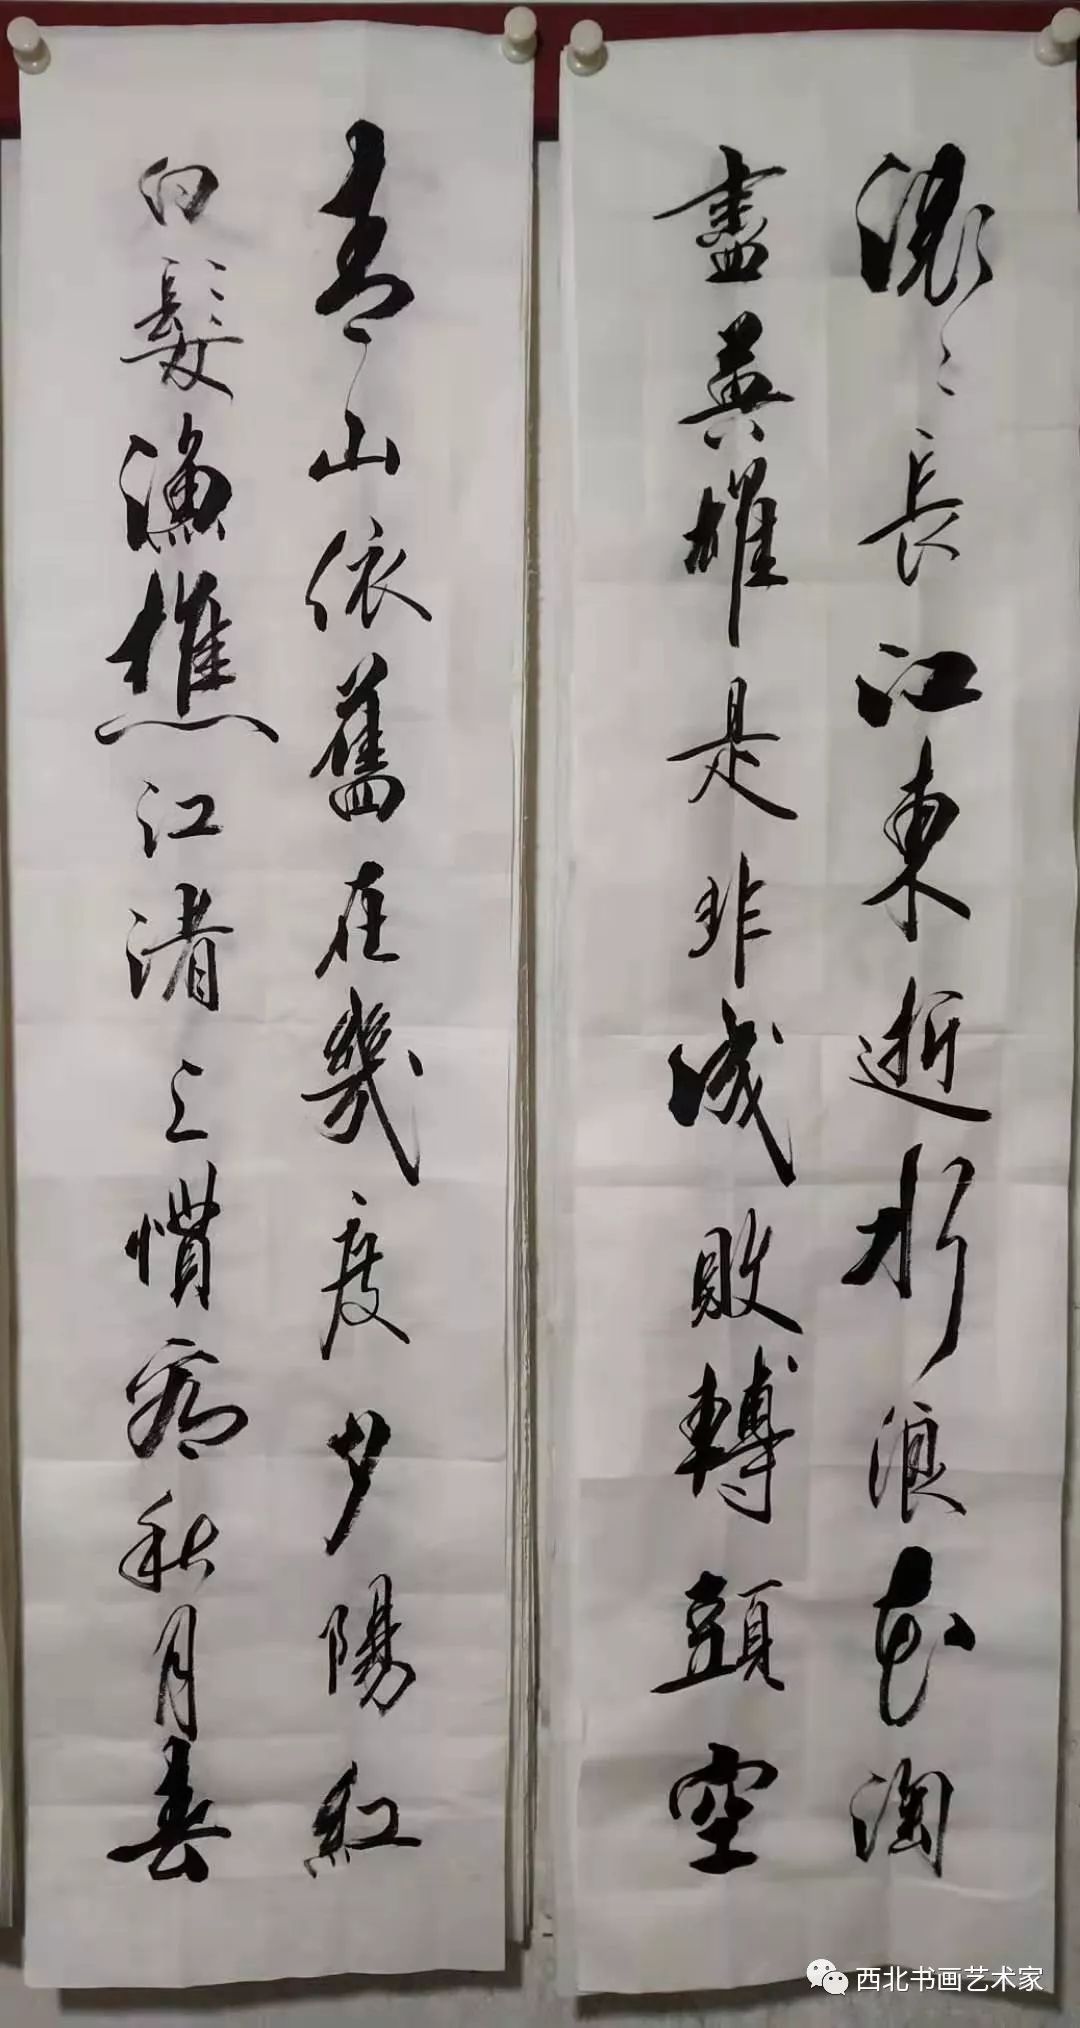 滚〻長江東逝水浪花淘
盡英雄是非成敗轉頭空
青山依舊在幾度夕陽紅
白髮漁樵江渚上慣看秋月春
西北书画艺术家